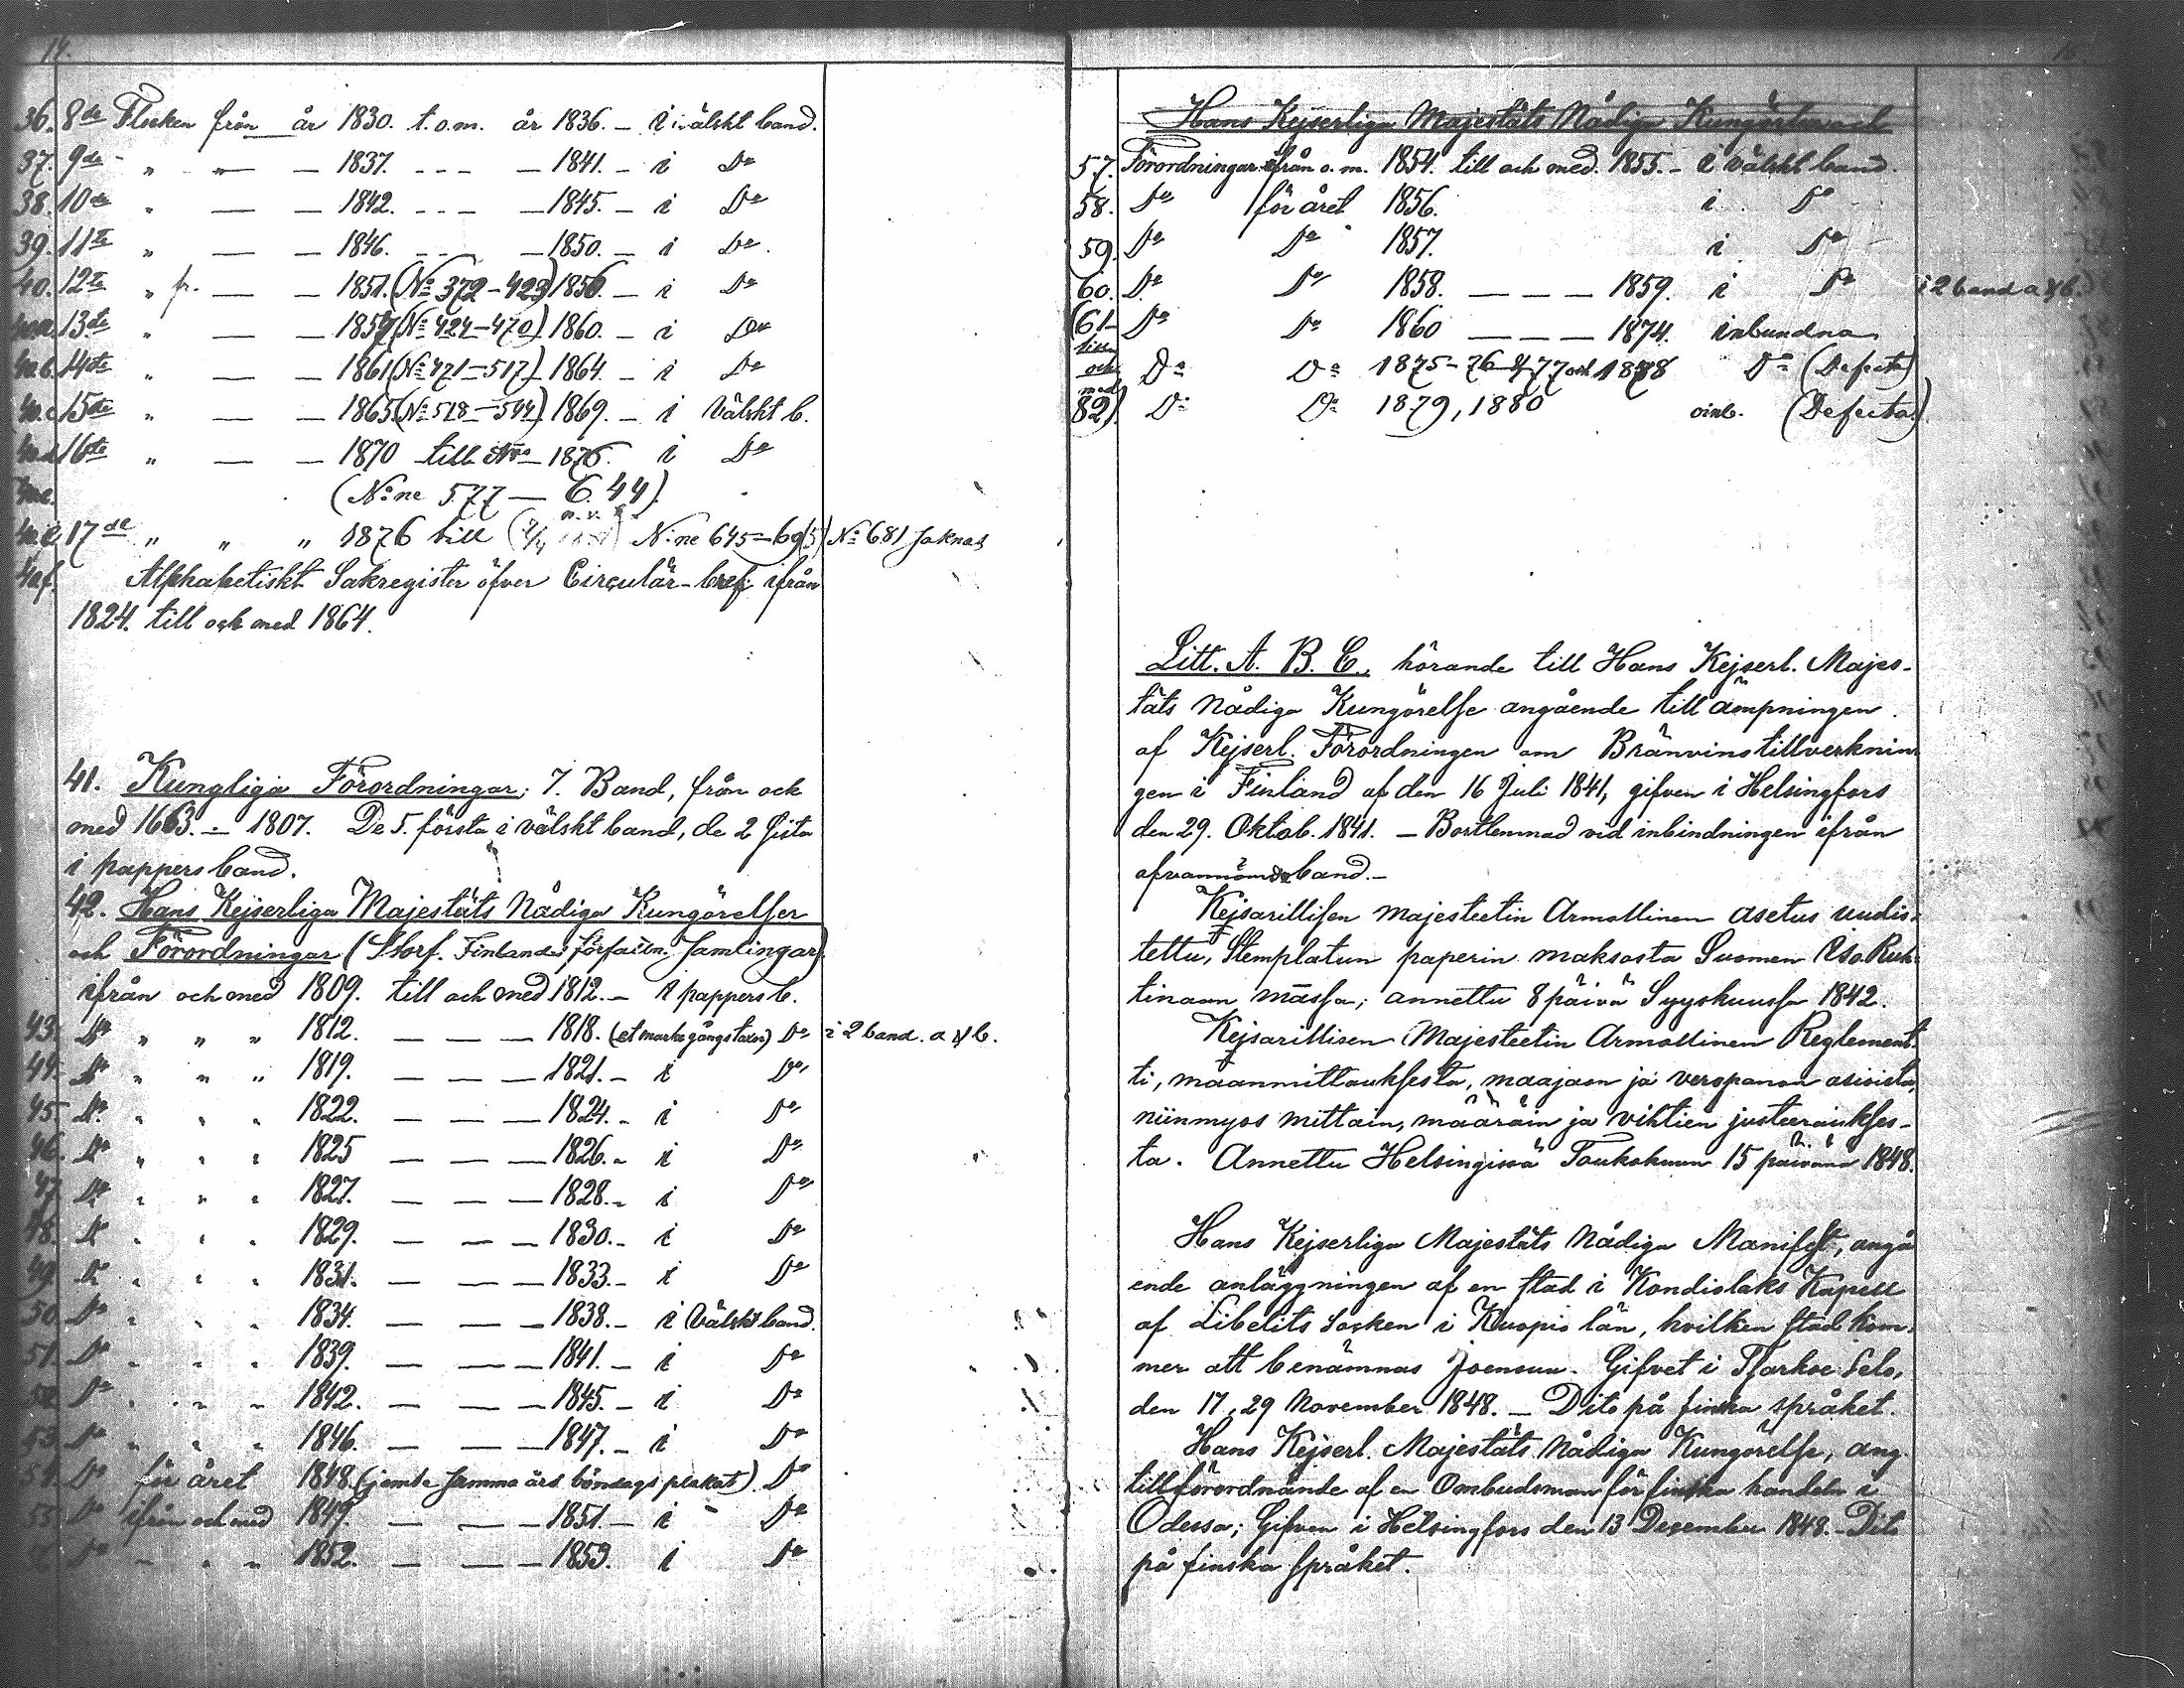 14.
36. 8de Flocken från år 1830. t.o.m. år 1836. – i välskt band.
37. 9de „ „ — 1837. - - - — 1841. – i Do
38. 10de „ — — 1842. - - - — 1845. – i Do
39. 11te „ — — 1846. - - - — 1850. – i Do.
40. 12te „ fr. — — 1851. (No 372–423) 1856. – i Do
13de „ — — 1857 (No 424–470) 1860. – i Do
14de „ — — 1861 (No 471–517) 1864. – i Do
15de „ — — 1865 (No 518–544) 1869. – i Välskt b.
16de „ — — 1870 till 1876. i Do
(No:ne 577 — 644).
17de „ „ „ 1876 till N:ne 645–69(5) No 681 saknas
40f. Alphabetiskt Sakregister öfver Circulär-bref ifrån
1824. till och med 1864.
41. Kungliga Förordningar; 7. Band, från och
med 1663. – 1807. De 5. första i välskt band, de 2 sista
i pappers band.
42. Hans Kejserliga Majestäts Nådiga Kungörelser
och Förordningar (Storf. Finlands författn. Samlingar)
ifrån och med 1809. till och med 1812. – i pappers b.
43. Do „ „ „ 1812. — — — 1818. (et markegångstaxor) Do i 2 band. a & b.
44. Do „ „ „ 1819. — — — 1821. – i Do
45. Do „ „ „ 1822. — — — 1824. – i Do
46. Do „ „ „ 1825 — — — 1826. – i Do
47. Do „ „ „ 1827. — — — 1828. – i Do
48. Do „ „ „ 1829. — — — 1830. – i Do
49. Do „ „ „ 1831. — — — 1833. – i Do
50. Do „ „ „ 1834. — — — 1838. – i Välskt band.
51. Do „ „ „ 1839. — — — 1841. – i Do
52. Do „ „ „ 1842. — — — 1845. – i Do
53. Do „ „ „ 1846. — — — 1847. – i Do
54. Do för året 1848. (jemte samma års böndagsplakat). Do
55. Do ifrån och med 1849. — — — 1851. – i Do
Do „ „ „ 1852. — — — 1853. i Do
Hans Kejserliga Majestäts Nådiga Kungörelser och
57. Förordningar ifrån o. m. 1854. till och med. 1855. – i välskt band.
58. Do för året 1856. i Do
59. Do Do 1857. i Do
60. Do Do 1858. — — — 1859. i Do i 2 band a & b.
(61– Do Do 1860 — — — 1874. inbundna
till och Do Do 1875–76–77 och 1878 Do (Defecta)
med 82). Do Do 1879, 1880 oinb. (Defecta.)
Litt. A. B. C., hörande till Hans Kejserl. Majes-
täts Nådiga Kungörelse angående tillämpningen
af Kejserl. Förordningen om Bränvinstillverknin-
gen i Finland af den 16 Juli 1841, gifven i Helsingfors
den 29. Oktob. 1841. – Bortlemnad vid inbindningen ifrån
ofvannämnda band. –
Kejsarillisen Majesteetin Armollinen asetus uudis-
tettu, Stemplatun paperin maksosta Suomen Iso Ruh-
tinaan maassa; annettu 8 päivä Syyskuussa 1842.
Kejsarillisen Majesteetin Armollinen Reglement-
ti, maanmittauksesta, maajaon ja veropanon asioista,
niinmyös mittain, määräin ja vihtien justeeraukses-
ta. Annettu Helsingissä Toukokuun 15 päivänä 1848.
Hans Kejserliga Majestäts Nådiga Manifest, angå-
ende anläggningen af en stad i Kondiolaks Kapell
af Libelits Socken i Kuopio län, hvilken stad kom-
mer att benämnas Joensuu. Gifvet i Tsarkoe Selo,
den 17,29 November 1848. – Dito på finska språket.
Hans Kejserl. Majestäts Nådiga Kungörelse, ang.
tillförordnande af en Ombudsman för finska handeln i
Odessa; Gifven i Helsingfors den 13 December 1848. – Dito
på finska språket.